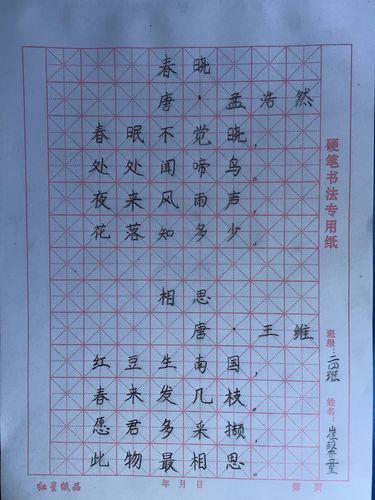 春晓
唐·孟浩然
春眠不觉晓，
处处闻啼鸟。
夜来风雨声，
花落知多少。
相思
唐·王维
红豆生南国，
春来发几枝。
愿君多采撷，
此物最相思。
硬笔书法专用纸
班级：二四班
姓名：
红星纸品
年 月 日
第 页